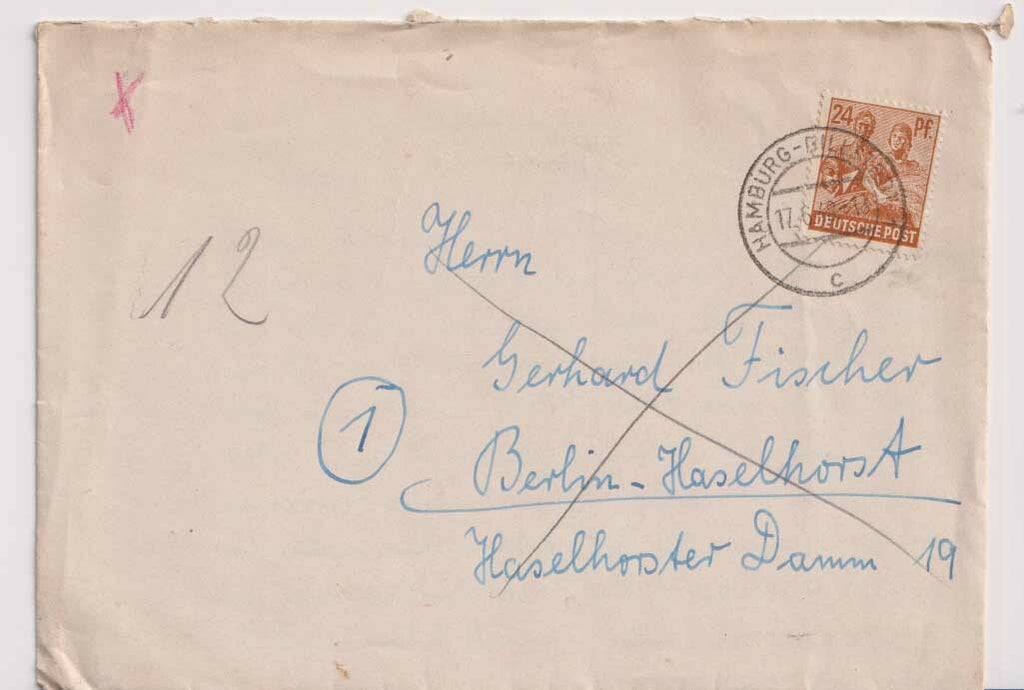 24 Pf.
DEUTSCHE POST
HAMBURG-
17.
c
12
Herrn
Gerhard Fischer
1
Berlin-Haselhorst
Haselhorster Damm 19